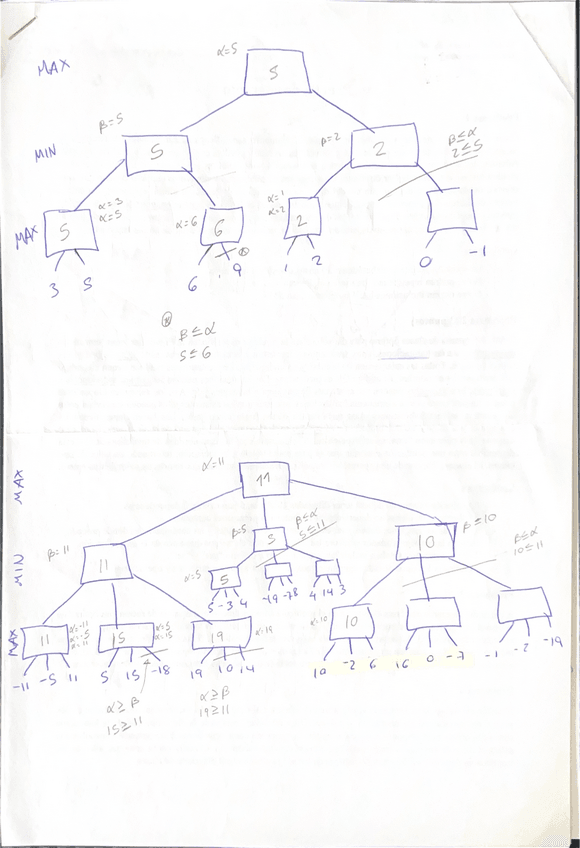 α=5
MAX
5
β=5
MIN
5
β=2
2
β≤α
2≤5
α=3
α=5
α=6
α=1
α=2
MAX
5
6
2
3 5
6 9
1 2
0 -1
β≤α
5≤6
MAX
α=11
11
β=5
5
β≤α
5≤11
β=10
10
β≤α
10≤11
MIN
β=11
11
α=5
5
5 -3 4
-19 -78
4 14 3
MAX
11
α=-11
α=-5
α=11
15
α=5
α=15
19
α=19
α=10
10
-11 -5 11
5 15 -18
19 10 14
10 -2 6
16 0 -7
-1 -2 -19
α≥β
15≥11
α≥β
19≥11